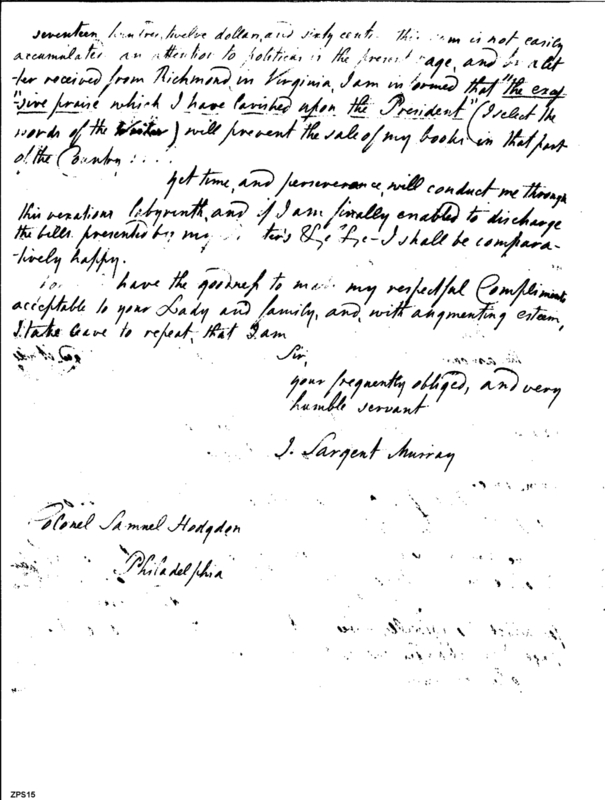 seventeen hundred, twelve dollars, and sixty cents this sum is not easily
accumulated an attention to politicas is the present rage, and by a let
-ter received from Richmond in Virginia, I am informed that "the exces
"sive praise which I have lavished upon the President" (I select the
words of the Writer) will prevent the sale of my books in that part
of the Country . . . .
Yet time, and perseverance, will conduct me through
this vexatious labyrinth, and if I am finally enabled to discharge
the bills presented by my &c &c - I shall be compara-
-tively happy.
have the goodness to make my respectful Compliments
acceptable to your Lady and family, and, with augmenting esteem,
I take leave to repeat, that I am
Sir,
your frequently obliged, and very
humble servant
J. Sargent Murray
Colonel Samuel Hodgdon
Philadelphia
ZPS15